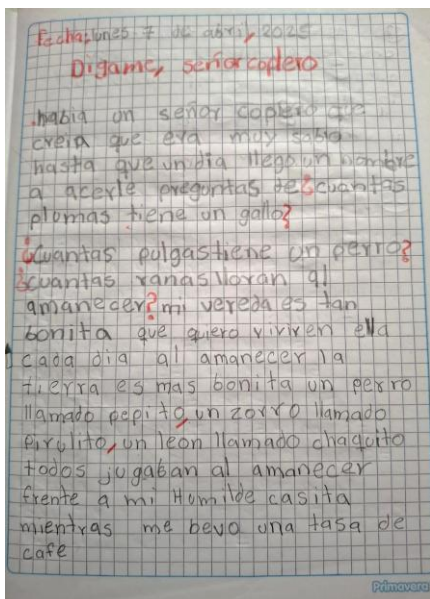 Fecha, lunes 7 de abril, 2025
Digame, señor coplero
.habia un señor coplero que
creia que era muy sabio
hasta que un dia llego un hombre
a acerle preguntas de ¿cuantas
plumas tiene un gallo?
¿cuantas pulgas tiene un perro?
¿cuantas ranas lloran al
amanecer? mi vereda es tan
bonita que quiero vivir en ella
cada dia al amanecer la
tierra es mas bonita un perro
llamado pepito, un zorro llamado
pirulito, un leon llamado chaquito
todos jugaban al amanecer
frente a mi Humilde casita
mientras me bevo una tasa de
cafe
Primavera